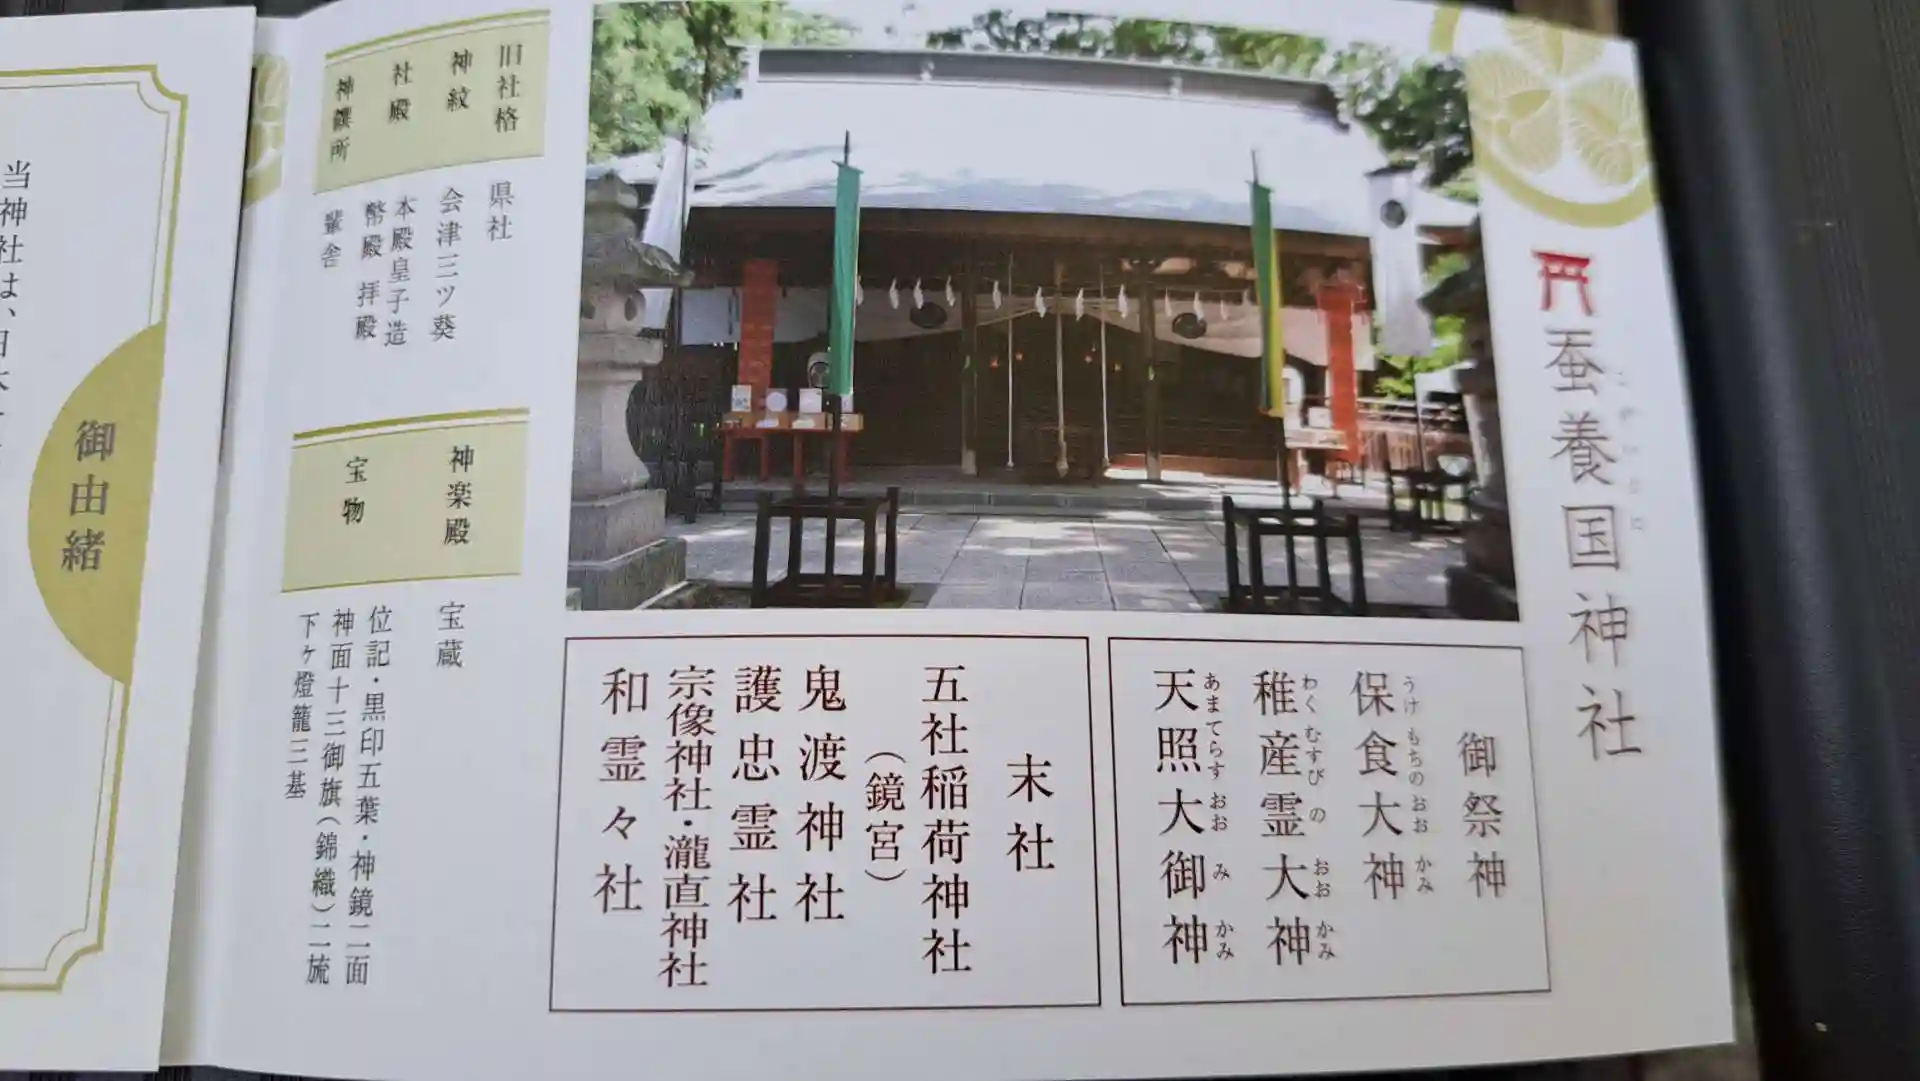 蚕養国神社
御祭神
保食大神
うけもちのおおかみ
稚産霊大神
わくむすびのおおかみ
天照大御神
あまてらすおおみかみ
末社
五社稲荷神社
（鏡宮）
鬼渡神社
護忠霊社
宗像神社・瀧直神社
和霊々社
旧社格
県社
神紋
会津三ツ葵
社殿
本殿皇子造
幣殿 拝殿
神饌所
輩舎
神楽殿
宝蔵
宝物
位記・黒印五葉・神鏡二面
神面十三御旗（錦織）二旒
下ヶ燈籠三基
御由緒
当神社は、日本